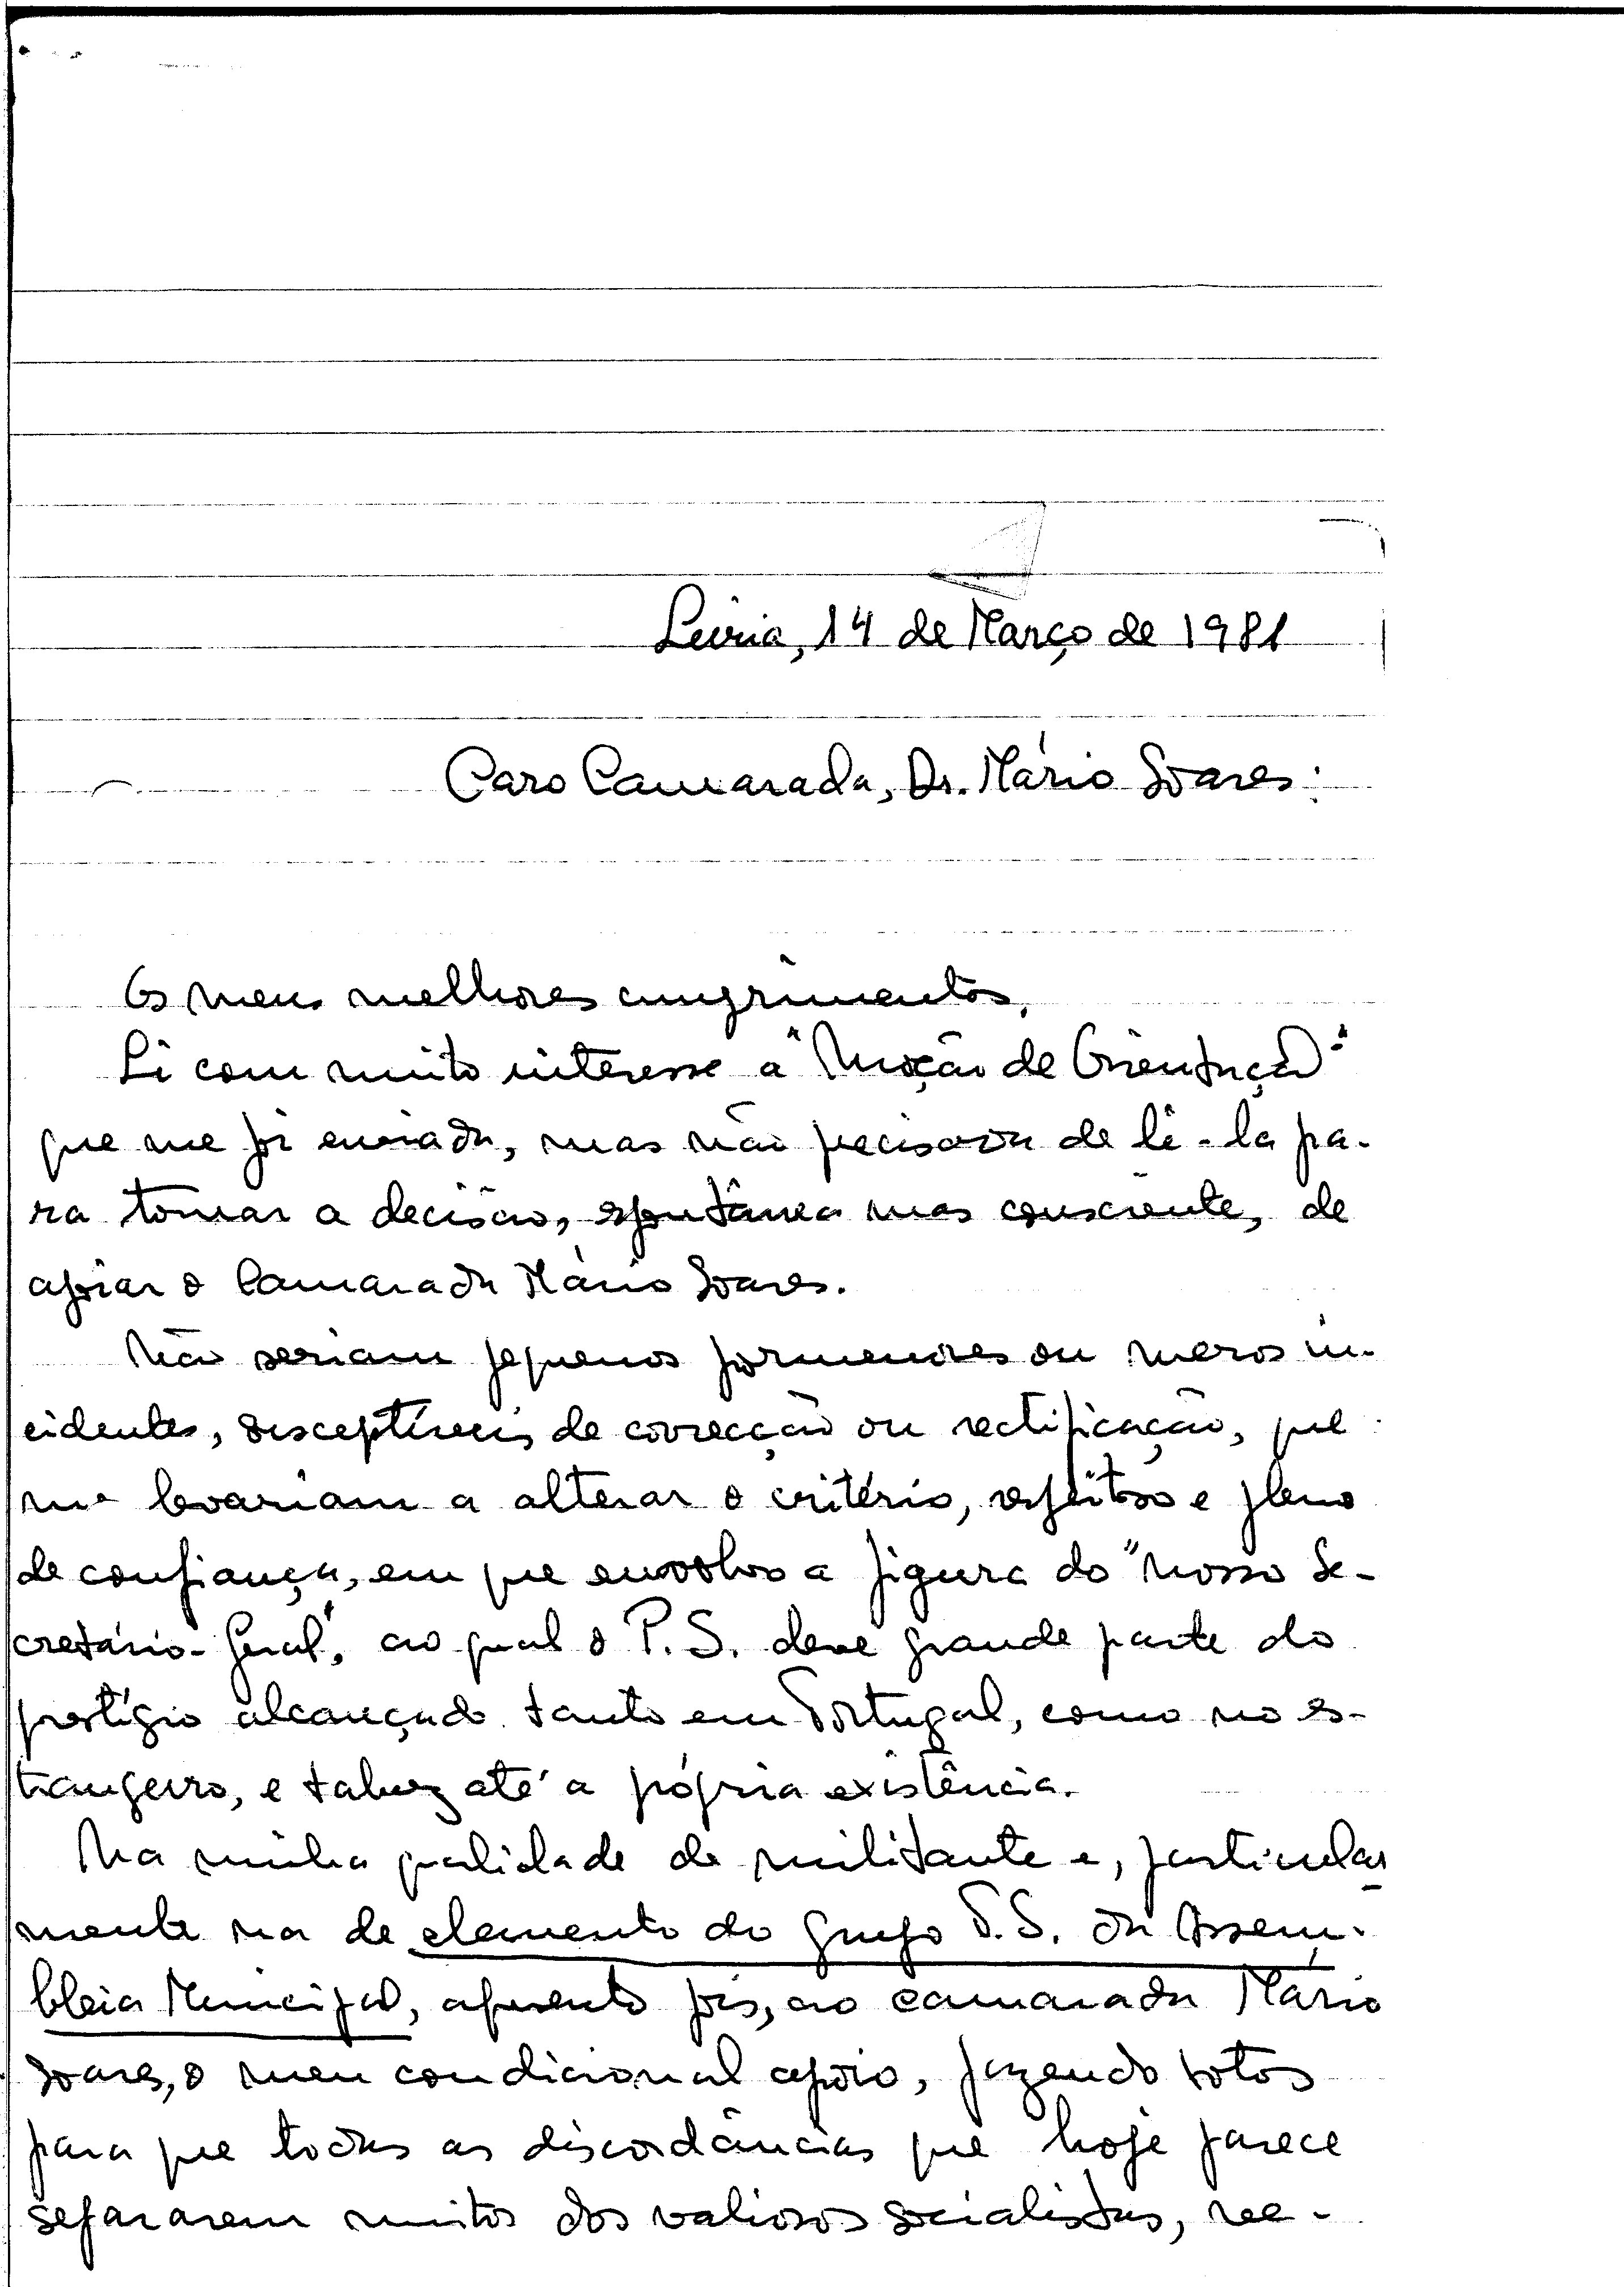 Leiria, 14 de Março de 1981
Caro Camarada, Dr. Mário Soares:
Os meus melhores cumprimentos.
Li com muito interesse a "Moção de Orientação"
que me foi enviada, mas não precisava de lê-la pa-
ra tomar a decisão, espontânea mas consciente, de
apoiar o Camarada Mário Soares.
Não seriam pequenos pormenores ou meros in-
cidentes, susceptíveis de correcção ou rectificação, que
me levariam a alterar o critério, respeitoso e pleno
de confiança, em que envolvo a figura do "nosso Se-
cretário-Geral", ao qual o P.S. deve grande parte do
prestígio alcançado tanto em Portugal, como no es-
trangeiro, e talvez até a própria existência.
Na minha qualidade de militante e, particular
mente na de elemento do grupo P.S. da Assem-
bleia Municipal, apresento pois, ao camarada Mário
Soares, o meu condicional apoio, fazendo votos
para que todas as discordâncias que hoje parece
separarem muitos dos valiosos socialistas, ve-